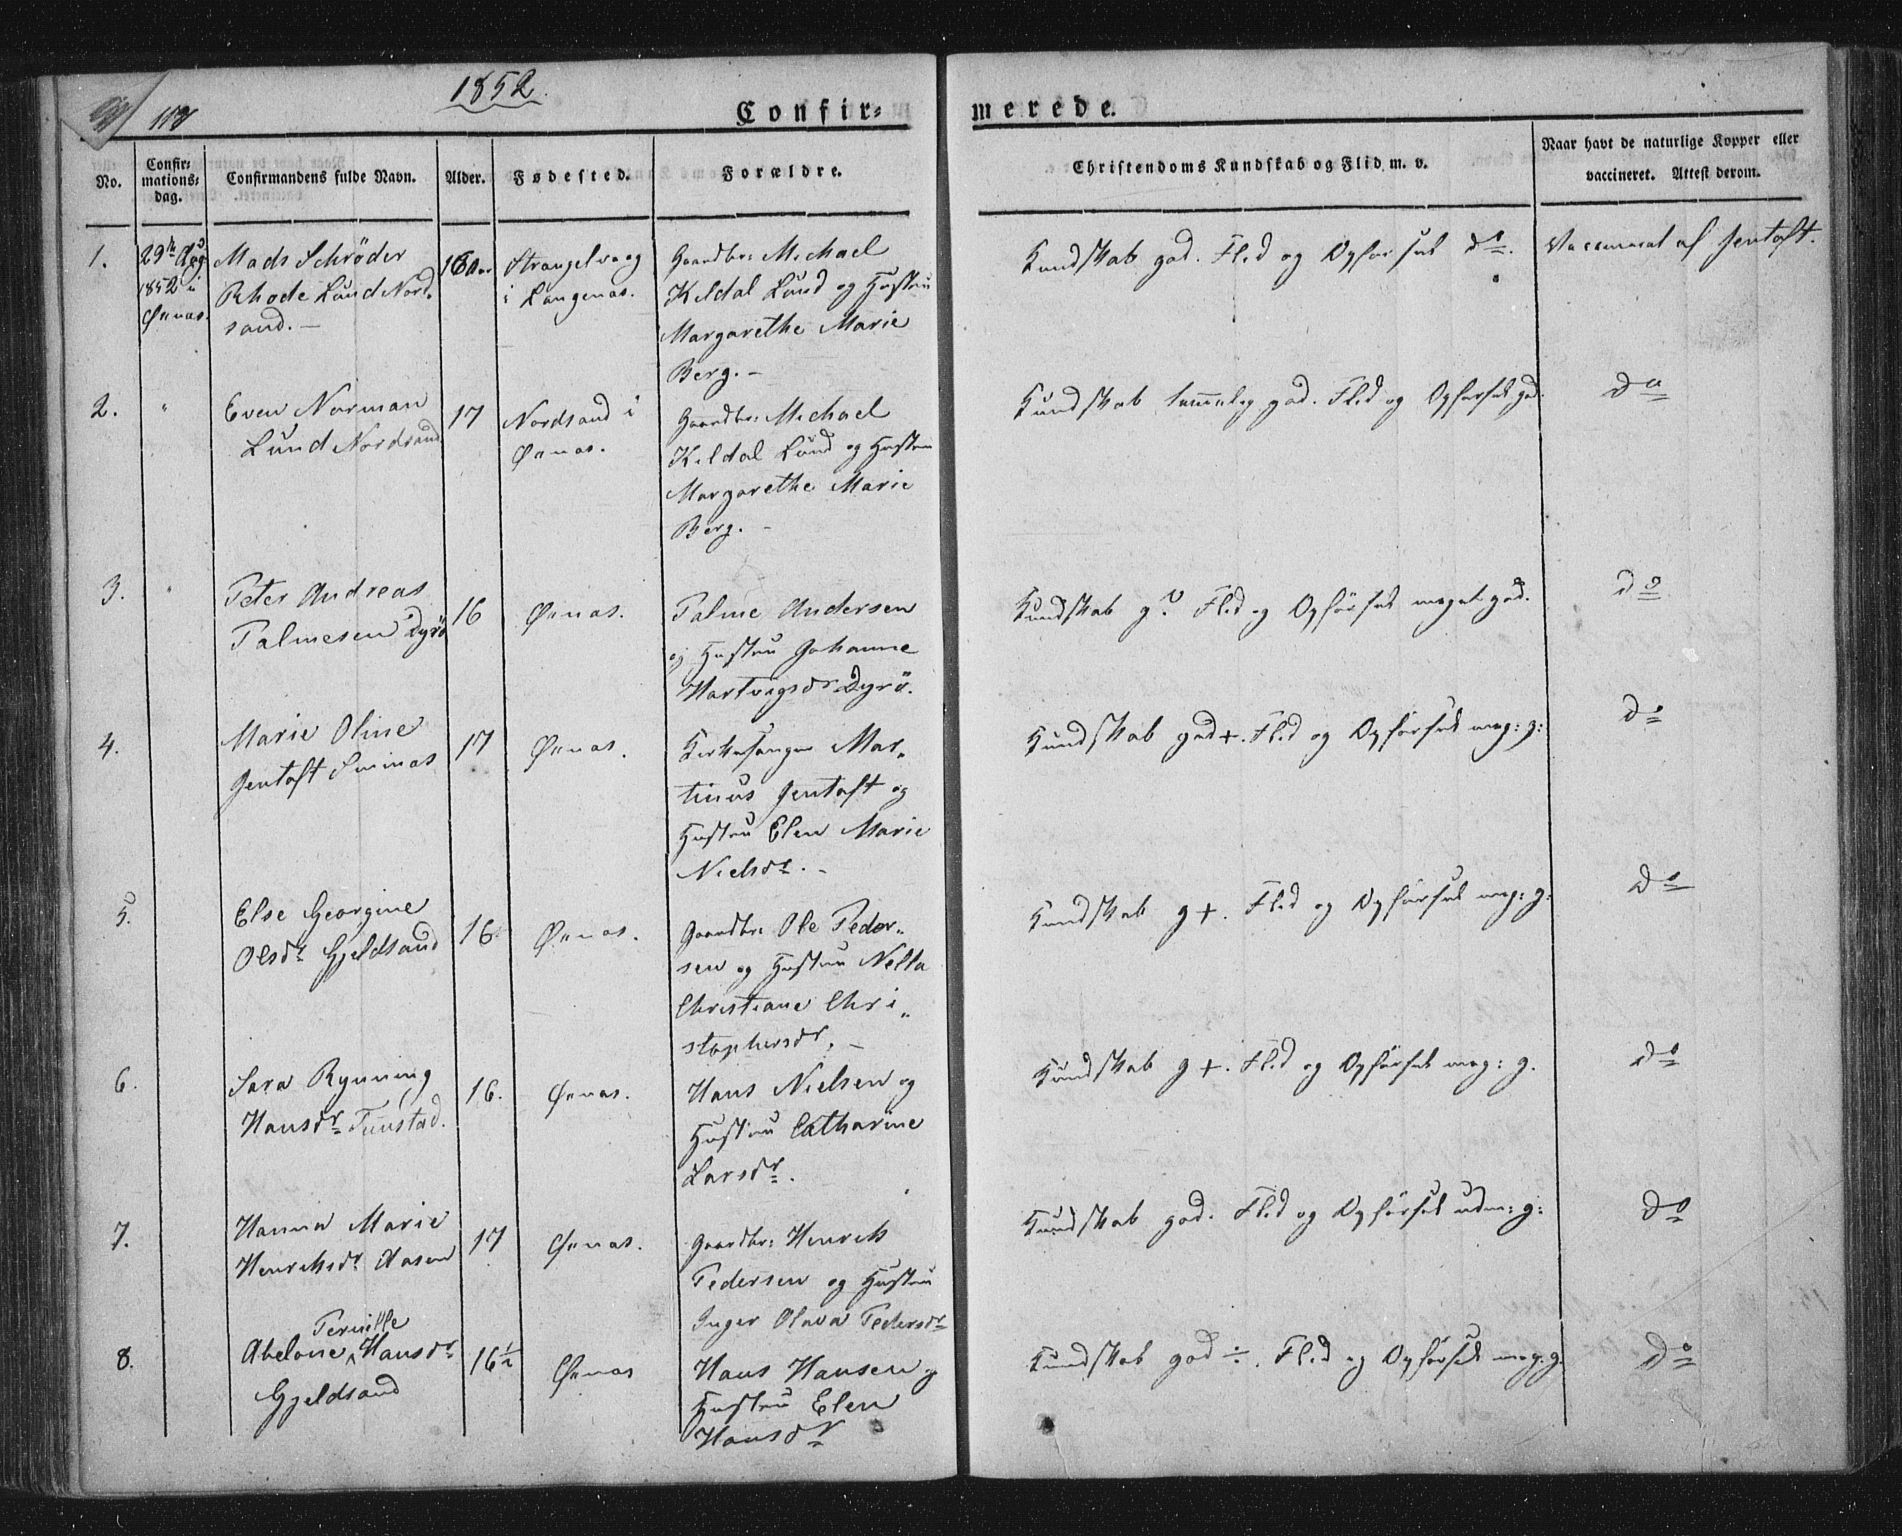 113
1852.
Confir-
merede.
No.
Confir-
mations-
dag.
Confirmandens fulde Navn.
Alder.
Fødested.
Forældre.
Christendoms Kundskab og Flid m. v.
Naar havt de naturlige Kopper eller
vaccineret. Attest derom.
1.
29de Aug
1852 i
Øxnæs.
Mads Schrøder
Rhode Lund Nord-
sand. —
16 Aar
Strengelvaag
i Langenæs.
Gaardbr: Michael
Kildal Lund og Hustru
Margarethe Marie
Berg. —
Kundskab god. Flid og Opførsel do.
Vaccineret af Jentoft.
2.
"
Even Norman
Lund Nordsand
17
Nordsand i
Øxnæs.
Gaardbr: Michael
Kildal Lund og Hustru
Margarethe Marie
Berg. —
Kundskab temmelig god. Flid og Opførsel god.
do
3.
"
Peter Andreas
Palmesen Dyrø
16
Øxnæs.
Palme Andersen
og Hustru Johanne
Hartvigsdr Dyrø.
Kundskab g? Flid og Opførsel meget god.
do
4.
Marie Oline
Jentoft Smines
17
Øxnæs.
Kirkesanger Mar-
tinus Jentoft og
Hustru Elen Marie
Nielsdr. —
Kundskab god+. Flid og Opførsel meg: g:
do
5.
Else Georgine
Olsdr Gjeldsand
16
Øxnæs.
Gaardbr: Ole Peder-
sen og Hustru Nella
Christiane Chri-
stophersdr. —
Kundskab g+. Flid og Opførsel meg: g:
do
6.
Sara Rynning
Hansdr Tunstad.
16.
Øxnæs.
Hans Nielsen og
Hustru Catharine
Larsdr.
Kundskab g+. Flid og Opførsel meg: g.
do
7.
Hanna Marie
Henriksdr Aasen
17
Øxnæs.
Gaardbr: Henrik
Pedersen og Hustru
Inger Olava Pedersdr
Kundskab god. Flid og Opførsel udm: g:
do
8.
Pernille
Abelone ^ Hansdr
Gjeldsand
16½
Øxnæs
Hans Hansen og
Hustru Elen
Hansdr
Kundskab god ÷. Flid og Opførsel meg: g.
do